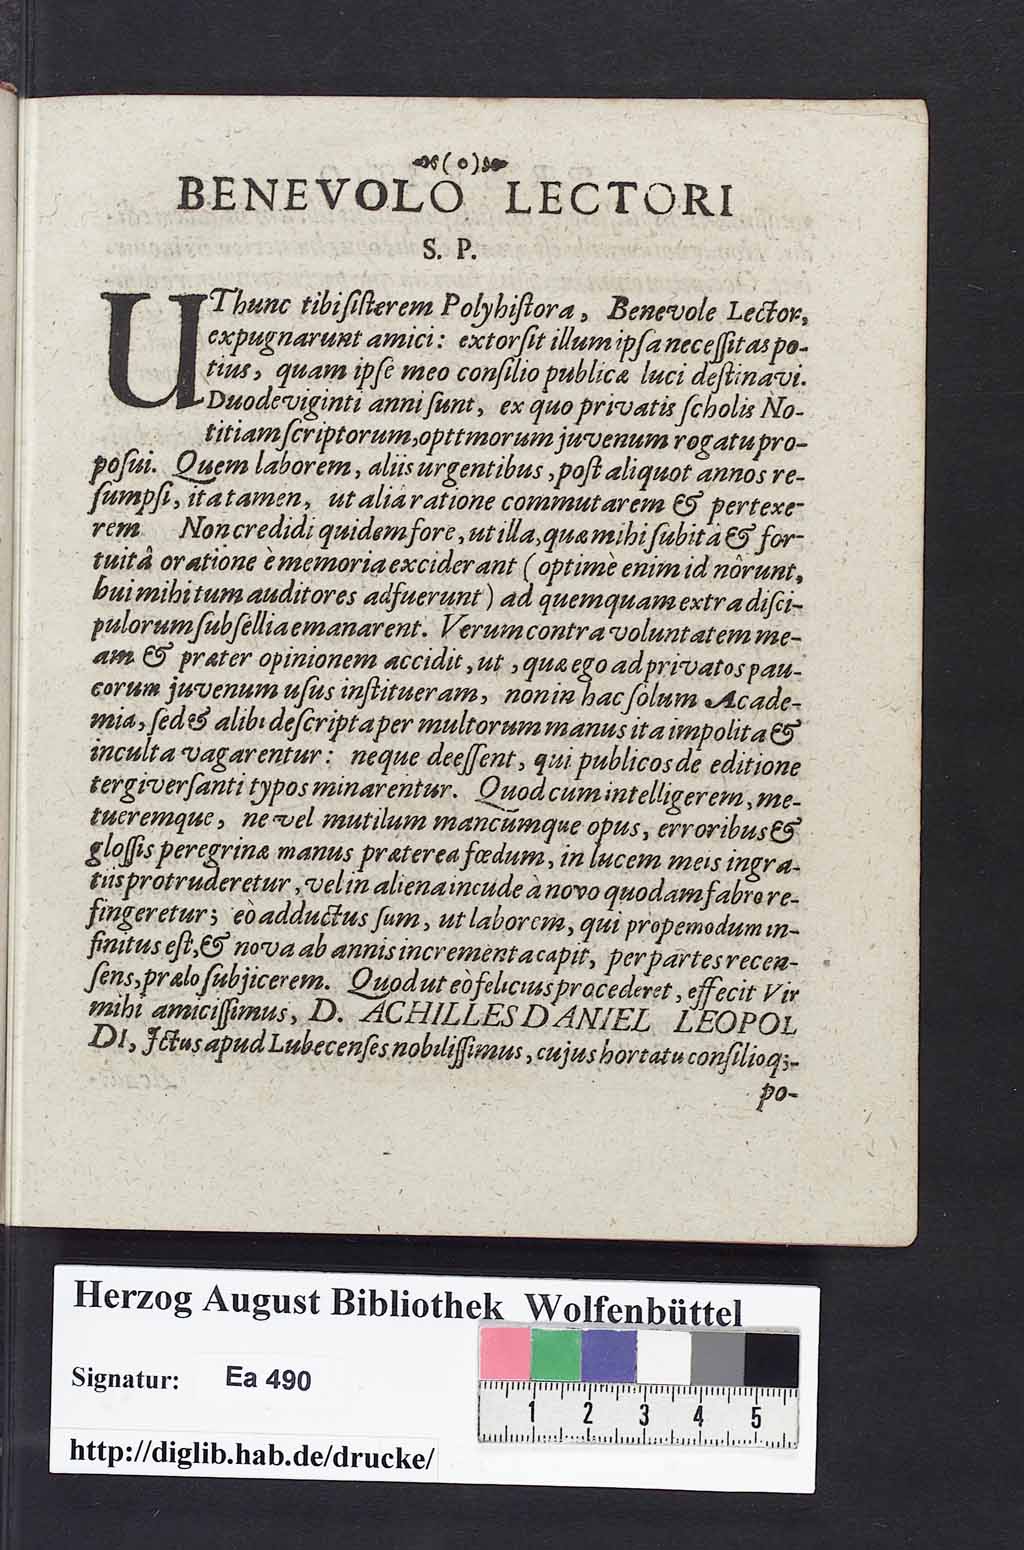 (o)
BENEVOLO LECTORI
S. P.
UT hunc tibi ſiſterem Polyhiſtora, Benevole Lector,
expugnarunt amici: extorſit illum ipſa neceſſitas po-
tius, quam ipſe meo conſilio publicæ luci deſtinavi.
Duodeviginti anni ſunt, ex quo privatis ſcholis No-
titiam ſcriptorum, opttmorum juvenum rogatu pro-
poſui. Quem laborem, aliis urgentibus, poſt aliquot annos re-
ſumpſi, ita tamen, ut aliâ ratione commutarem & pertexe-
rem Non credidi quidem fore, ut illa, quæ mihi ſubita & for-
tuitâ oratione è memoria exciderant (optimè enim id nôrunt,
hui mihi tum auditores adfuerunt) ad quemquam extra diſci-
pulorum ſubſellia emanarent. Verum contra voluntatem me-
am & præter opinionem accidit, ut, quæ ego ad privatos pau-
corum juvenum uſus inſtitueram, non in hac ſolum Acade-
mia, ſed & alibi deſcripta per multorum manus ita impolita &
inculta vagarentur: neque deeſſent, qui publicos de editione
tergiverſanti typos minarentur. Quod cum intelligerem, me-
tueremque, ne vel mutilum mancumque opus, erroribus &
gloſſis peregrinæ manus præterea fœdum, in lucem meis ingra-
tiis protruderetur, vel in aliena incude à novo quodam fabro re-
fingeretur; eò adductus ſum, ut laborem, qui propemodum in-
finitus eſt, & nova ab annis incrementa capit, per partes recen-
ſens, prælo ſubjicerem. Quod ut eò felicius procederet, effecit Vir
mihi amiciſſimus, D. ACHILLES DANIEL LEOPOL
DI, Jctus apud Lubecenſes nobiliſſimus, cujus hortatu conſilioq;-
po-
Herzog August Bibliothek Wolfenbüttel
Signatur: Ea 490
1 2 3 4 5
http://diglib.hab.de/drucke/